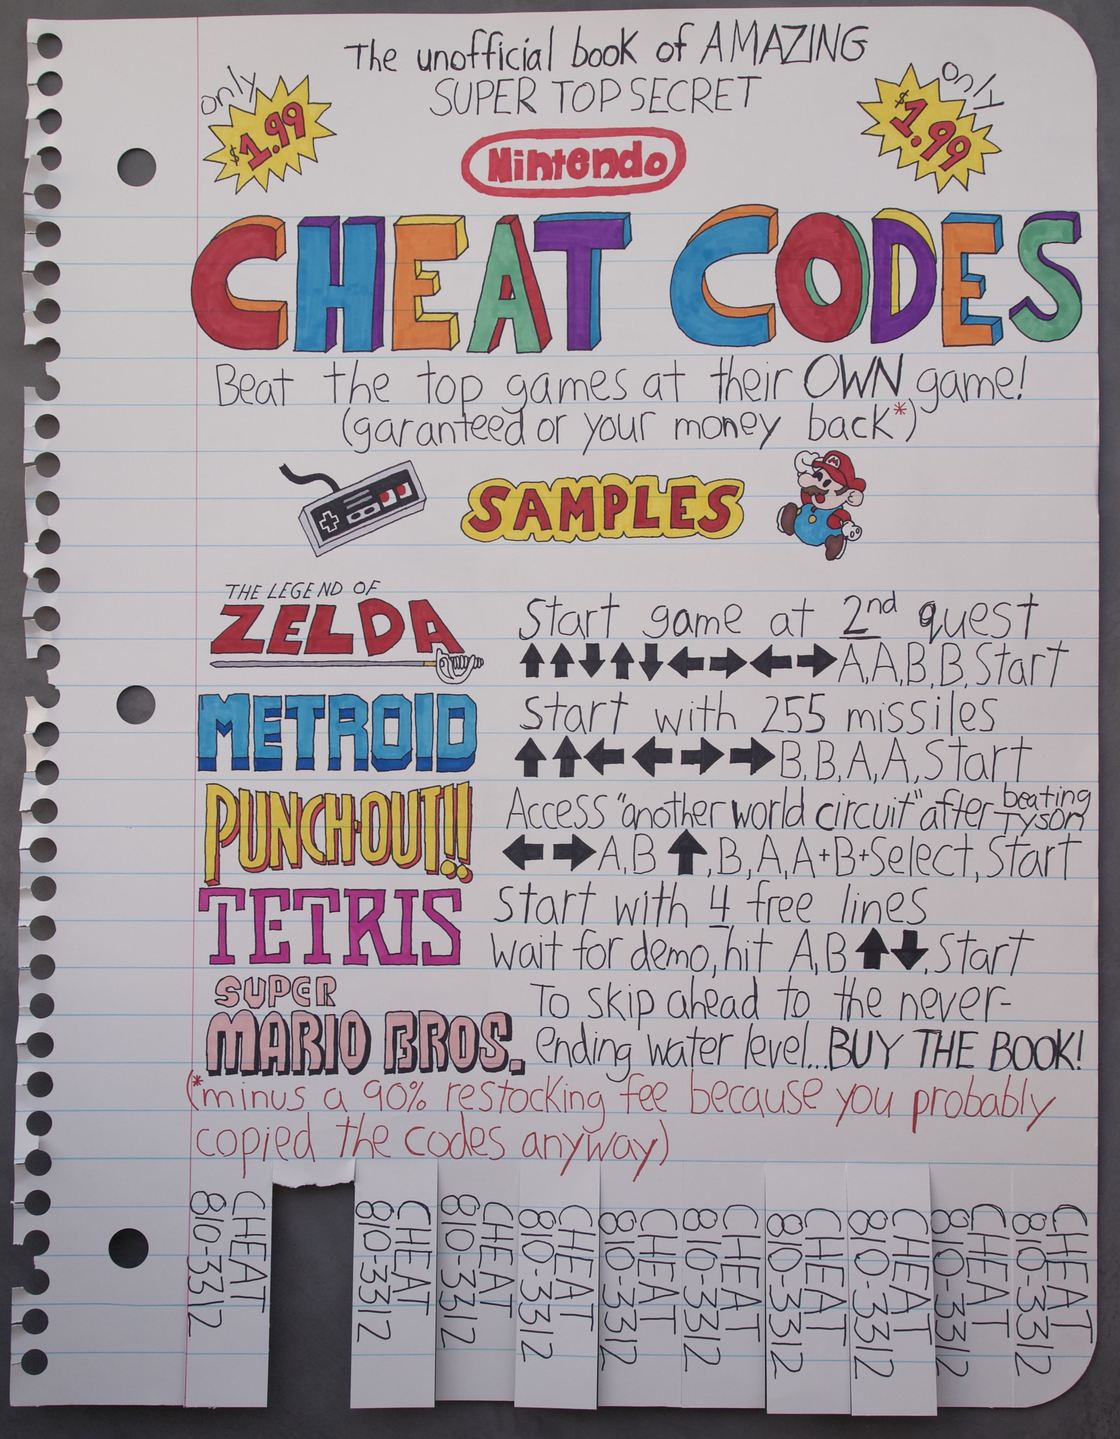 The unofficial book of AMAZING
SUPER TOP SECRET
only
$1.99
only
$1.99
Nintendo
CHEAT CODES
Beat the top games at their OWN game!
(garanteed or your money back*)
SAMPLES
THE LEGEND OF
ZELDA
Start game at 2nd quest
↑↑↓↑↓←→←→A,A,B,B,Start
METROID
Start with 255 missiles
↑↑←←→→B,B,A,A,Start
PUNCH-OUT!!
Access "another world circuit" after beating TYSON
←→A,B↑,B,A,A+B+Select,Start
TETRIS
Start with 4 free lines
wait for demo, hit A,B↑↓,Start
SUPER
MARIO BROS.
To skip ahead to the never-
ending water level...BUY THE BOOK!
(*minus a 90% restocking fee because you probably
copied the codes anyway)
CHEAT
810-3312
CHEAT
810-3312
CHEAT
810-3312
CHEAT
810-3312
CHEAT
810-3312
CHEAT
810-3312
CHEAT
810-3312
CHEAT
810-3312
CHEAT
810-3312
CHEAT
810-3312